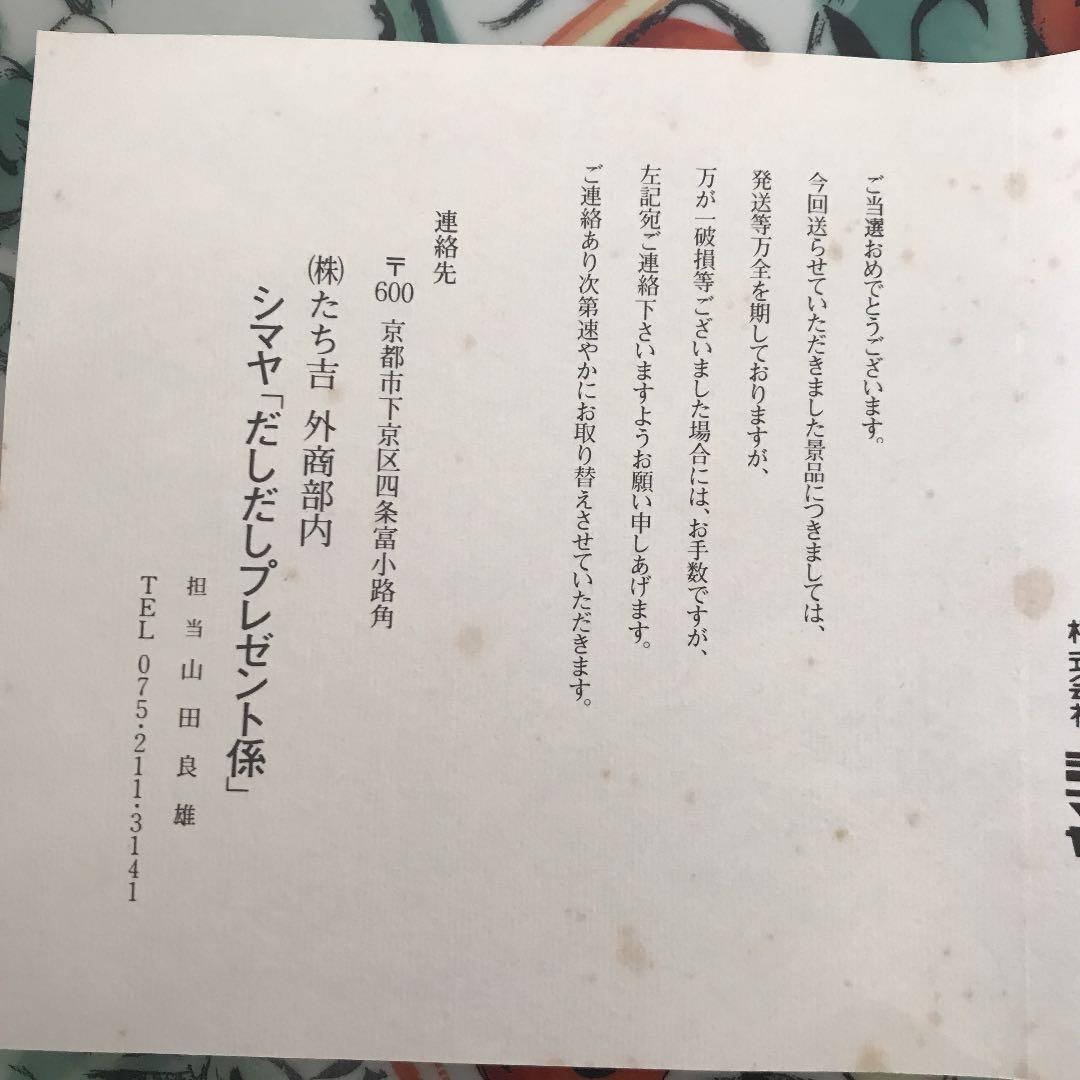 株式会社 シマヤ
ご当選おめでとうございます。
今回送らせていただきました景品につきましては、
発送等万全を期しておりますが、
万が一破損等ございました場合には、お手数ですが、
左記宛ご連絡下さいますようお願い申しあげます。
ご連絡あり次第速やかにお取り替えさせていただきます。
連絡先
〒600 京都市下京区四条富小路角
㈱たち吉 外商部内
シマヤ「だしだしプレゼント係」
担当 山田良雄
TEL 075・211・3141